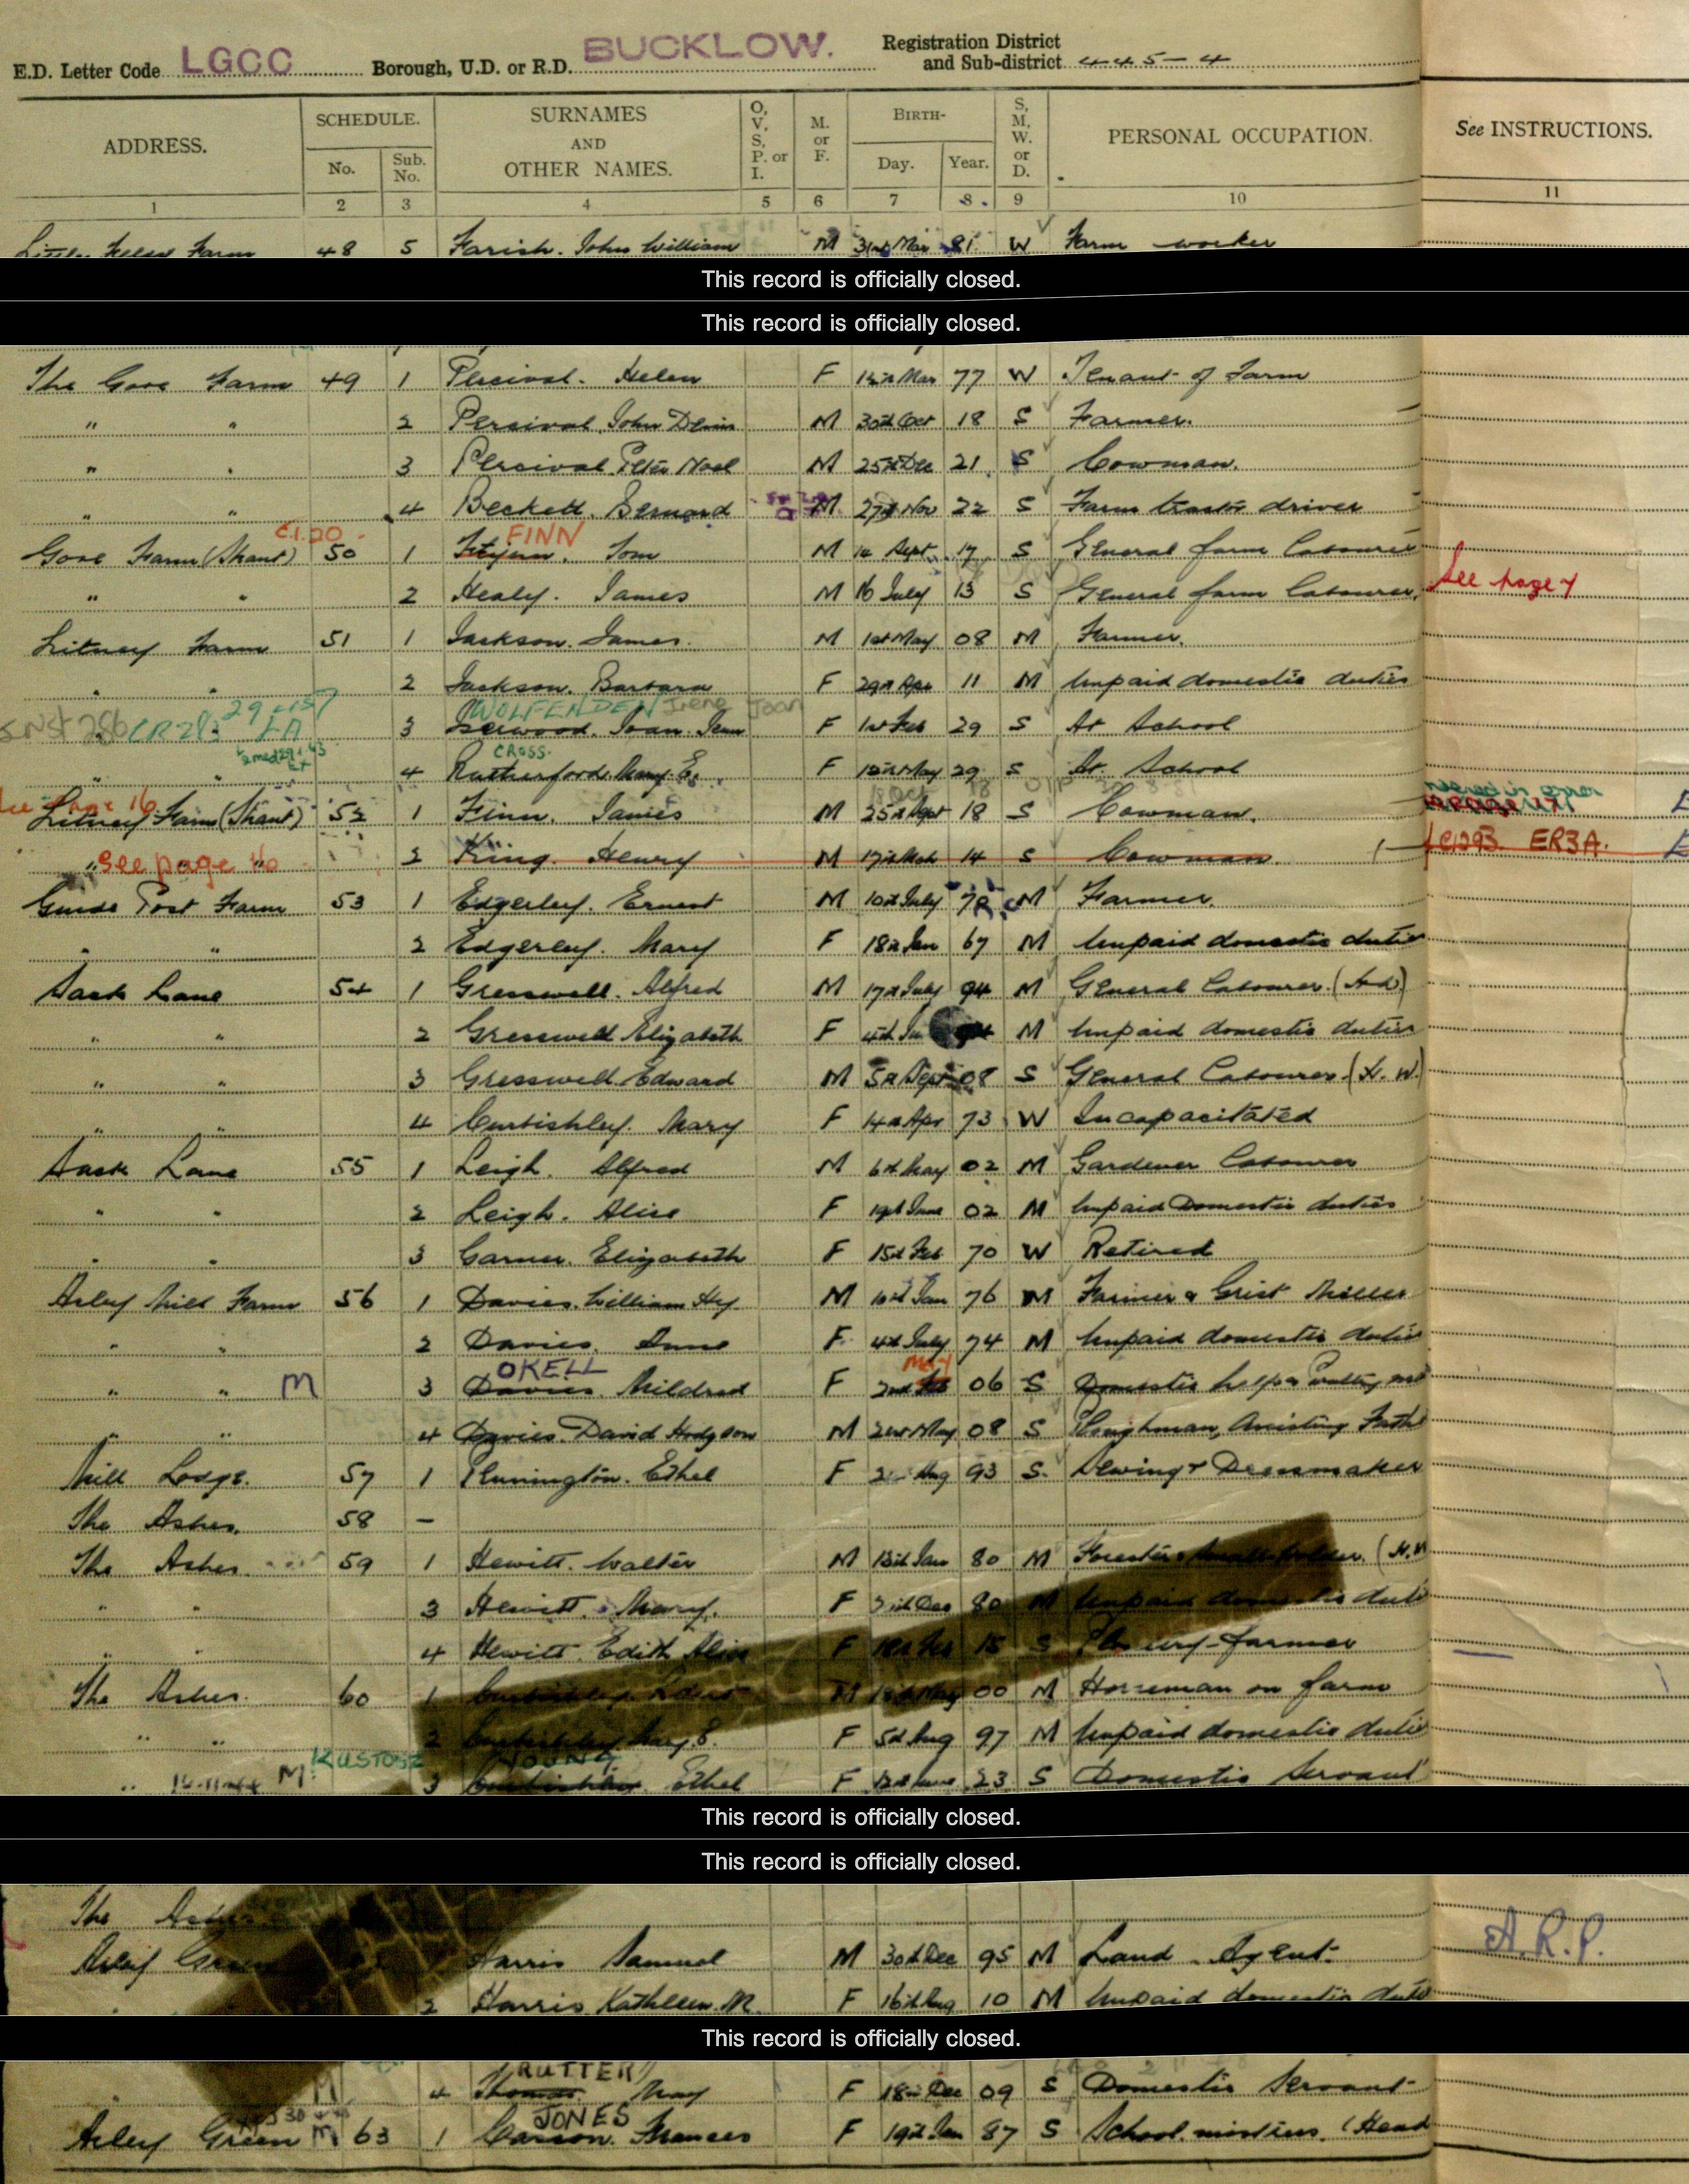 E.D. Letter Code LGCC Borough, U.D. or R.D. BUCKLOW. Registration District and Sub-district 445-4
ADDRESS. SCHEDULE. No. Sub. No. SURNAMES AND OTHER NAMES. O, V, S, P. or I. M. or F. BIRTH- Day. Year. S, M, W. or D. PERSONAL OCCUPATION. See INSTRUCTIONS.
1 2 3 4 5 6 7 8. 9 10 11
Farm 48 5 Farish. John William M 31st Mar 81 W Farm worker
This record is officially closed.
This record is officially closed.
The Gore Farm 49 1 Percival. Helen F Mar 77 W Tenant of Farm
" " 2 Percival. John M 30th Oct 18 S Farmer.
" " 3 Percival. Peter Noel M 25th Dec 21 S Cowman.
" " 4 Beckett. Bernard M 27th Nov 22 S Farm tractor driver
C.1.20. FINN
Gore Farm (Shant) 50 1 Tom M 14 Sept 17 S General farm labourer
" " 2 Healy. James M 16 July 13 S General farm labourer. See page 7
Litney Farm 51 1 Jackson. James. M 1st May 08 M Farmer.
" " 2 Jackson. Barbara F 29th Apr 11 M Unpaid domestic duties
WOLFENDEN Irene Joan
3 Joan F 1st Feb 29 S At School
CROSS.
" " 4 Rutherford. Mary E. F May 29 S At School
See page 16
Litney Farm (Shant) 52 1 Finn. James M 25th 18 S Cowman.
" See page 16 2 King. Henry M 17th Mch 14 S Cowman. ER3A.
Guide Post Farm 53 1 Edgerley. Ernest M 10th July M Farmer.
" " 2 Edgerley. Mary F 18th Jan 67 M Unpaid domestic duties
Sack Lane 54 1 Gresswell. Alfred M 17th July 94 M General Labourer.
" " 2 Gresswell Elizabeth F 4th M Unpaid domestic duties
" " 3 Gresswell. Edward M 5th Sept 08 S General Labourer (H.W.)
" " 4 Curbishley. Mary F 14th Apr 73 W Incapacitated
Sack Lane 55 1 Leigh. Alfred M 6th May 02 M Gardener Labourer
" " 2 Leigh. Alice F 19th June 02 M Unpaid Domestic duties
" " 3 Garner. Elizabeth F 15th Feb 70 W Retired
Arley Mill Farm 56 1 Davies. William Hy. M 10th Jan 76 M Farmer & Grist Miller
" " 2 Davies. Anne F. 4th July 74 M Unpaid domestic duties
OKELL MAY
" " M 3 Davies. Mildred F 2nd Feb 06 S Domestic
" " 4 Davies. David Hodgson M May 08 S Ploughman, Assisting Father
Mill Lodge. 57 1 Plunnington. Ethel F Aug 93 S. Sewing & Dressmaker
The Ashes. 58 —
The Ashes 59 1 Hewitt. Walter M 13th Jan 80 M Forester
" " 3 Hewitt. Mary. F Dec 80 M Unpaid domestic duties
" " 4 Hewitt. Edith Alice F Feb 15 S farmer
The Ashes. 60 1 Curbishley M May 00 M Horseman on farm
" " 2 Curbishley Mary E. F 5th Aug 97 M Unpaid domestic duties
KUSTOSZ YOUNG
" M. 3 Curbishley Ethel F 12th June 23 S Domestic Servant
This record is officially closed.
This record is officially closed.
The Ashes
Arley Green Harris Samuel M 30th Dec 95 M Land Agent. A.R.P.
2 Harris Kathleen. M. F 16th Aug 10 M Unpaid domestic duties
This record is officially closed.
RUTTER
M 4 Thomas. May F 18th Dec 09 S Domestic Servant
JONES
Arley Green M 63 1 Carson. Frances F 19th Jan 87 S School mistress. (Head